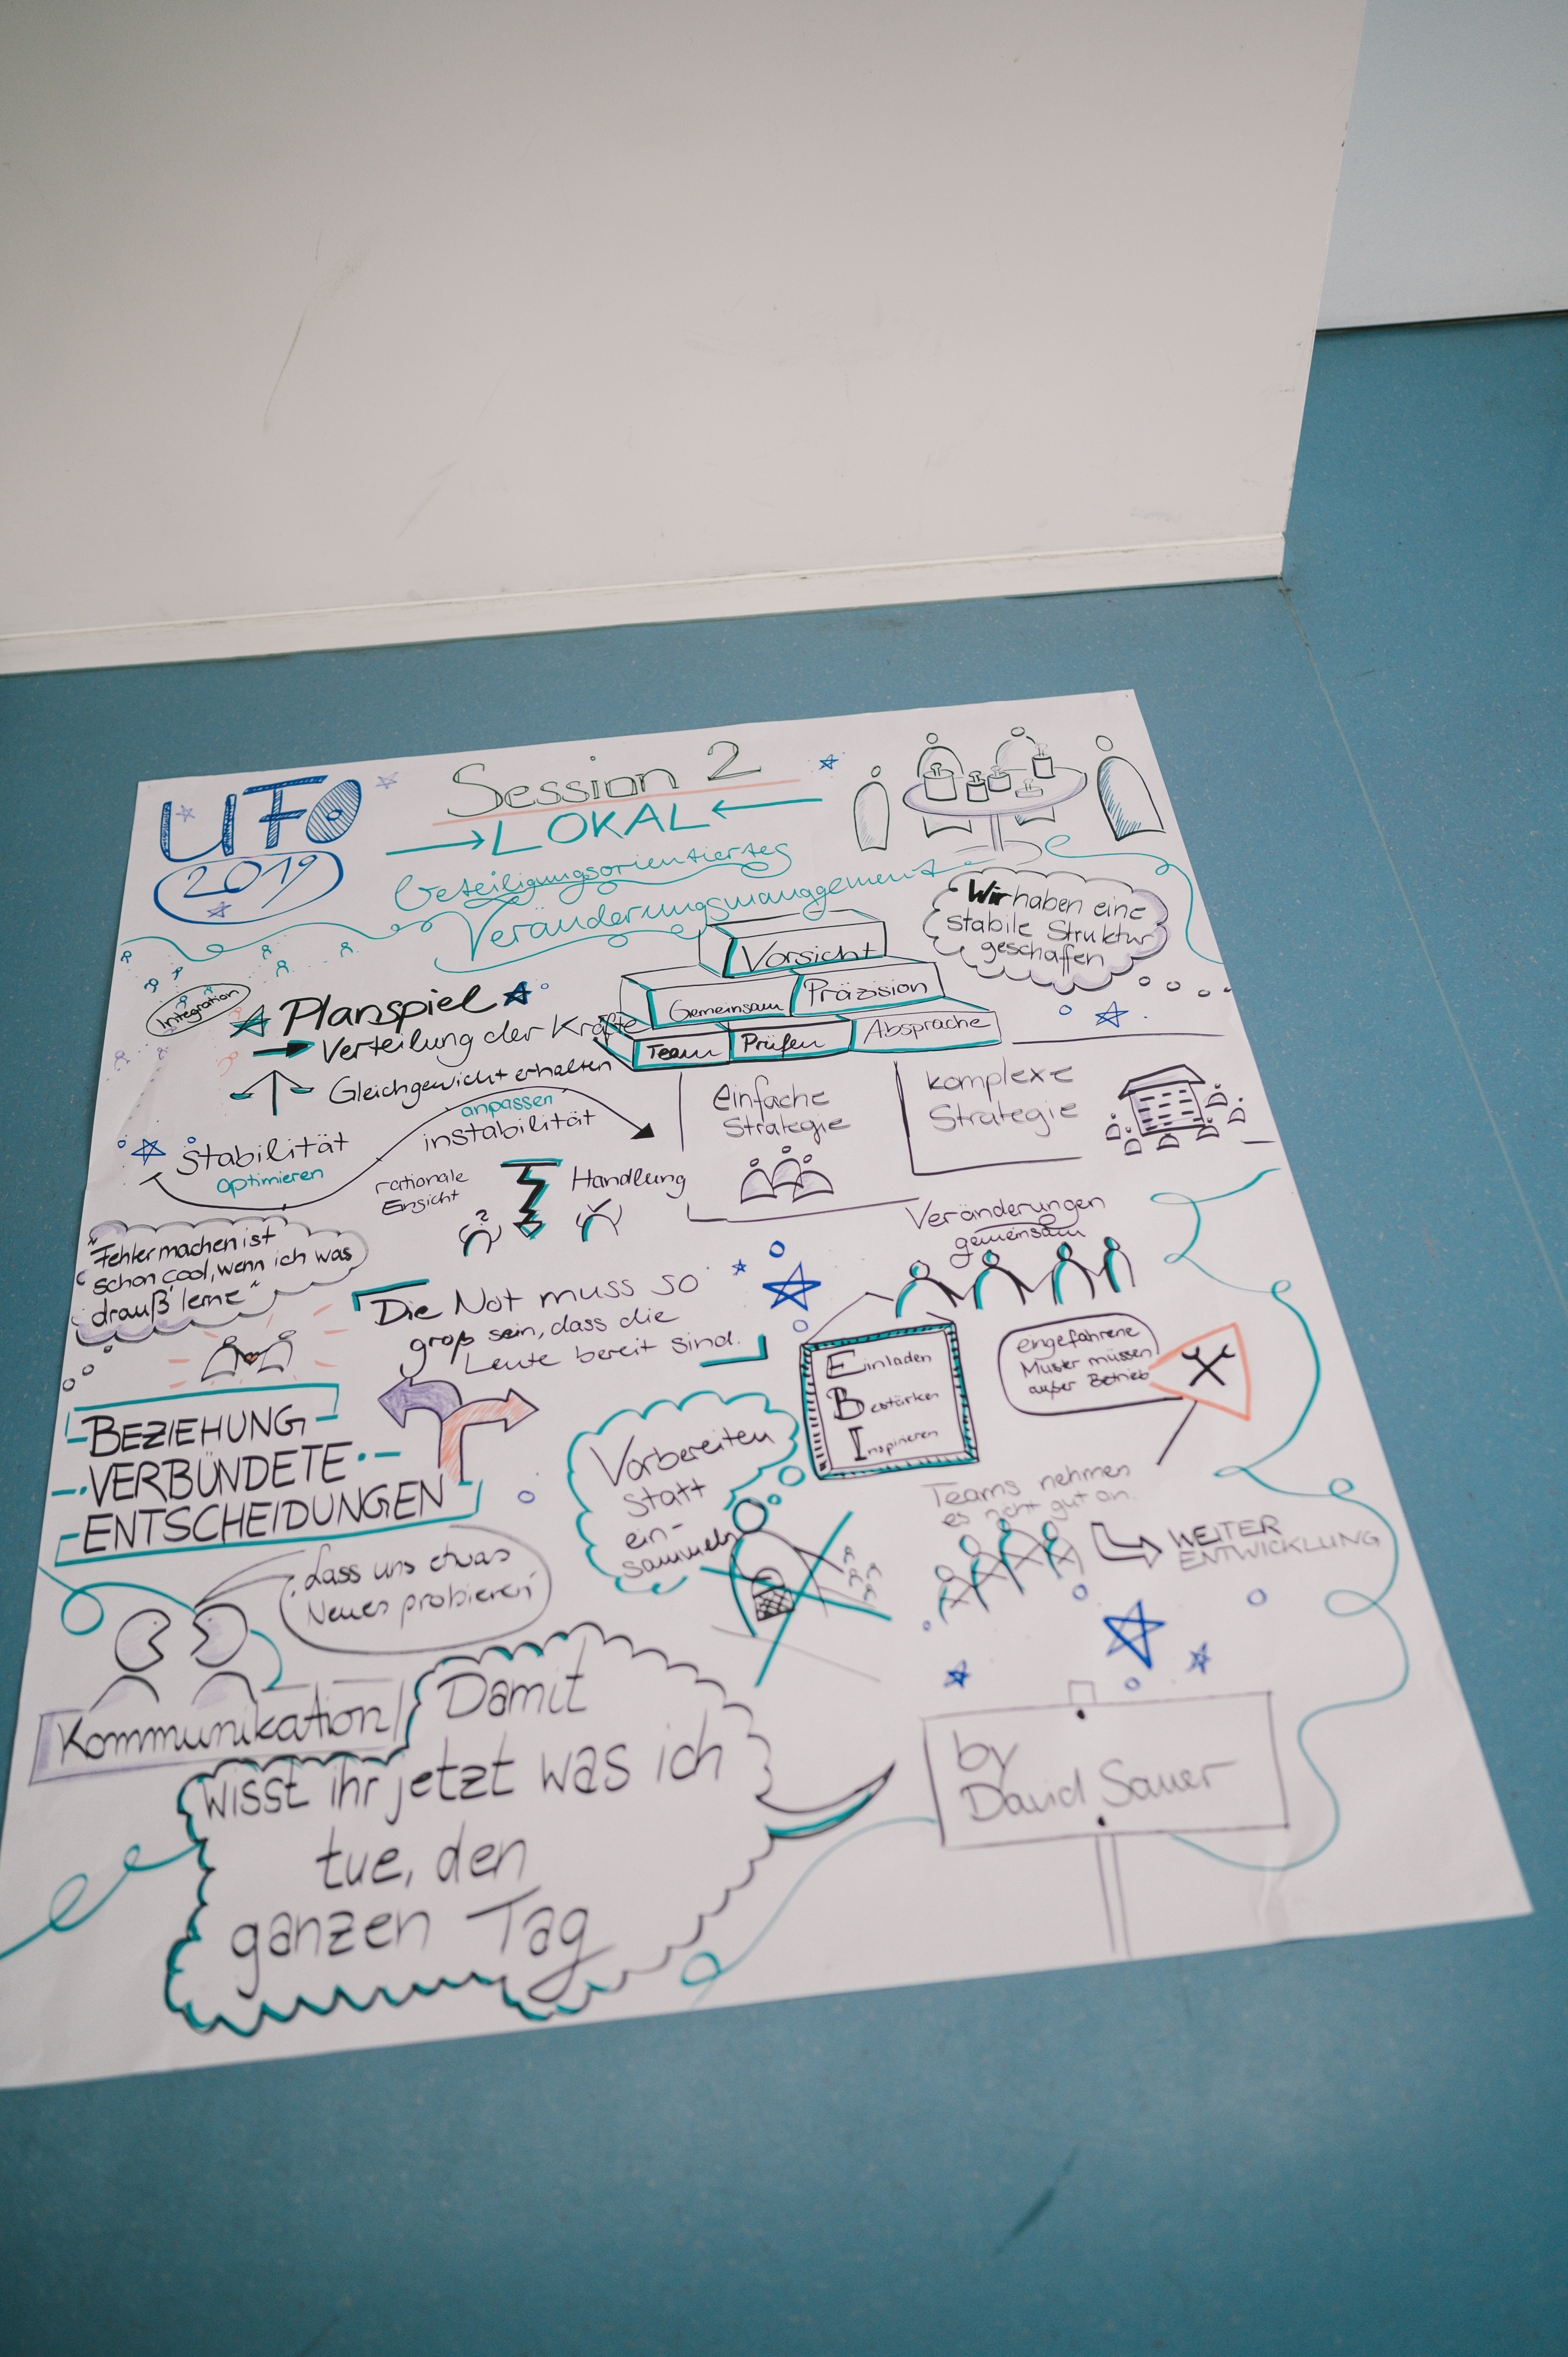 UFO
2019
Session 2
LOKAL
beteiligungsorientiertes
Veränderungsmanagement
Wir haben eine
stabile Struktur
geschaffen
Integration
Planspiel
Verteilung der Kräfte
Gleichgewicht erhalten
Vorsicht
Gemeinsam
Präzision
Team
Prüfen
Absprache
Stabilität
optimieren
anpassen
instabilität
einfache
Strategie
komplexe
Strategie
rationale
Einsicht
?
Handlung
"Fehler machen ist
schon cool, wenn ich was
drauß' lerne"
Die Not muss so
groß sein, dass die
Leute bereit sind.
Veränderungen
gemeinsam
Einladen
Bestärken
Inspirieren
eingefahrene
Muster müssen
außer Betrieb
BEZIEHUNG
VERBÜNDETE
ENTSCHEIDUNGEN
Vorbereiten
statt
ein-
sammeln
Teams nehmen
es gut an.
WEITER
ENTWICKLUNG
Lass uns etwas
Neues probieren
Kommunikation
Damit
wisst ihr jetzt was ich
tue, den
ganzen Tag
by
David Sauer